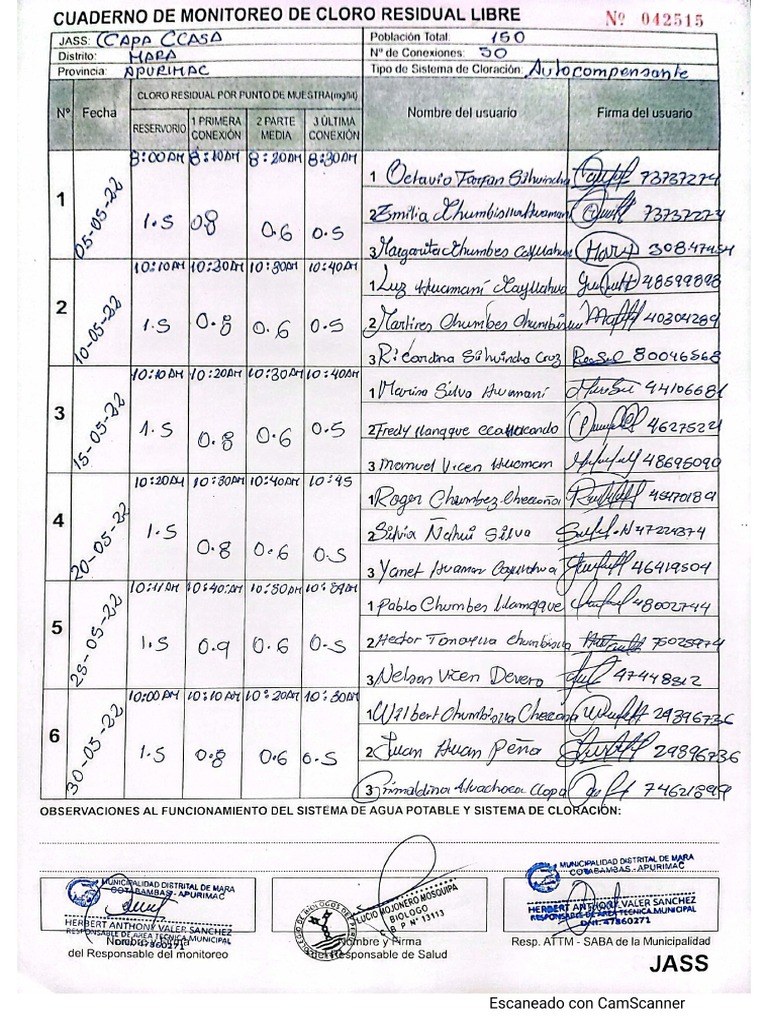 CUADERNO DE MONITOREO DE CLORO RESIDUAL LIBRE Nº 042515
JASS: CCAPA CCASA Población Total: 150
Distrito: MARA Nº de Conexiones: 50
Provincia: APURIMAC Tipo de Sistema de Cloración: Autocompensante
Nº Fecha CLORO RESIDUAL POR PUNTO DE MUESTRA(mg/lt) Nombre del usuario Firma del usuario
RESERVORIO 1 PRIMERA CONEXIÓN 2 PARTE MEDIA 3 ÚLTIMA CONEXIÓN
1 05-05-22 8:00AM 8:10AM 8:20AM 8:30AM
1.5 0.8 0.6 0.5
1 Octavio Farfan Silhuincha 73737274
2 Emilia Chumbisuca Huamani 73737274
3 Margarita Chumbes Ccayllahua 30847454
2 10-05-22 10:10AM 10:20AM 10:30AM 10:40AM
1.5 0.8 0.6 0.5
1 Luz Huamaní 48599898
2 Martires Chumbes 40304289
3 Ricardina Silhuincha Cruz 80046568
3 15-05-22 10:10AM 10:20AM 10:30AM 10:40AM
1.5 0.8 0.6 0.5
1 Marino Silva Huamaní 44106681
2 Fredy Llanqque 46275221
3 Manuel Vicen Huaman 48695090
4 20-05-22 10:20AM 10:30AM 10:40AM 10:45
1.5 0.8 0.6 0.5
1 Roger Chumbez Checcoña
2 Silvia Ñahui Silva 47224374
3 Yanet Huaman 46419504
5 10:40AM 10:50AM
1.5 0.9 0.6 0.5
1 Pablo Chumbes Llamqque 48002744
2 Hector 75025974
3 Nelson Vicen Devero 47448312
6 30-05-22 10:00AM 10:10AM 10:20AM 10:30AM
1.5 0.8 0.6 0.5
1 Wilbert Chumbisuca 29396736
2 Juan Huan Peña 29896736
3 Grimaldina Huachaca Ccopa
OBSERVACIONES AL FUNCIONAMIENTO DEL SISTEMA DE AGUA POTABLE Y SISTEMA DE CLORACIÓN:
MUNICIPALIDAD DISTRITAL DE MARA
COTABAMBAS - APURIMAC
HERBERT ANTHONY VALER SANCHEZ
RESPONSABLE DE AREA TECNICA MUNICIPAL
DNI: 47860271
Nombre y Firma
del Responsable del monitoreo
LUCIO MOJONERO MOSQUIPA
BIOLOGO
C B P Nº 13113
Nombre y Firma
del Responsable de Salud
MUNICIPALIDAD DISTRITAL DE MARA
COTABAMBAS - APURIMAC
HERBERT ANTHONY VALER SANCHEZ
RESPONSABLE DE AREA TECNICA MUNICIPAL
DNI: 47860271
Resp. ATTM - SABA de la Municipalidad
JASS
Escaneado con CamScanner